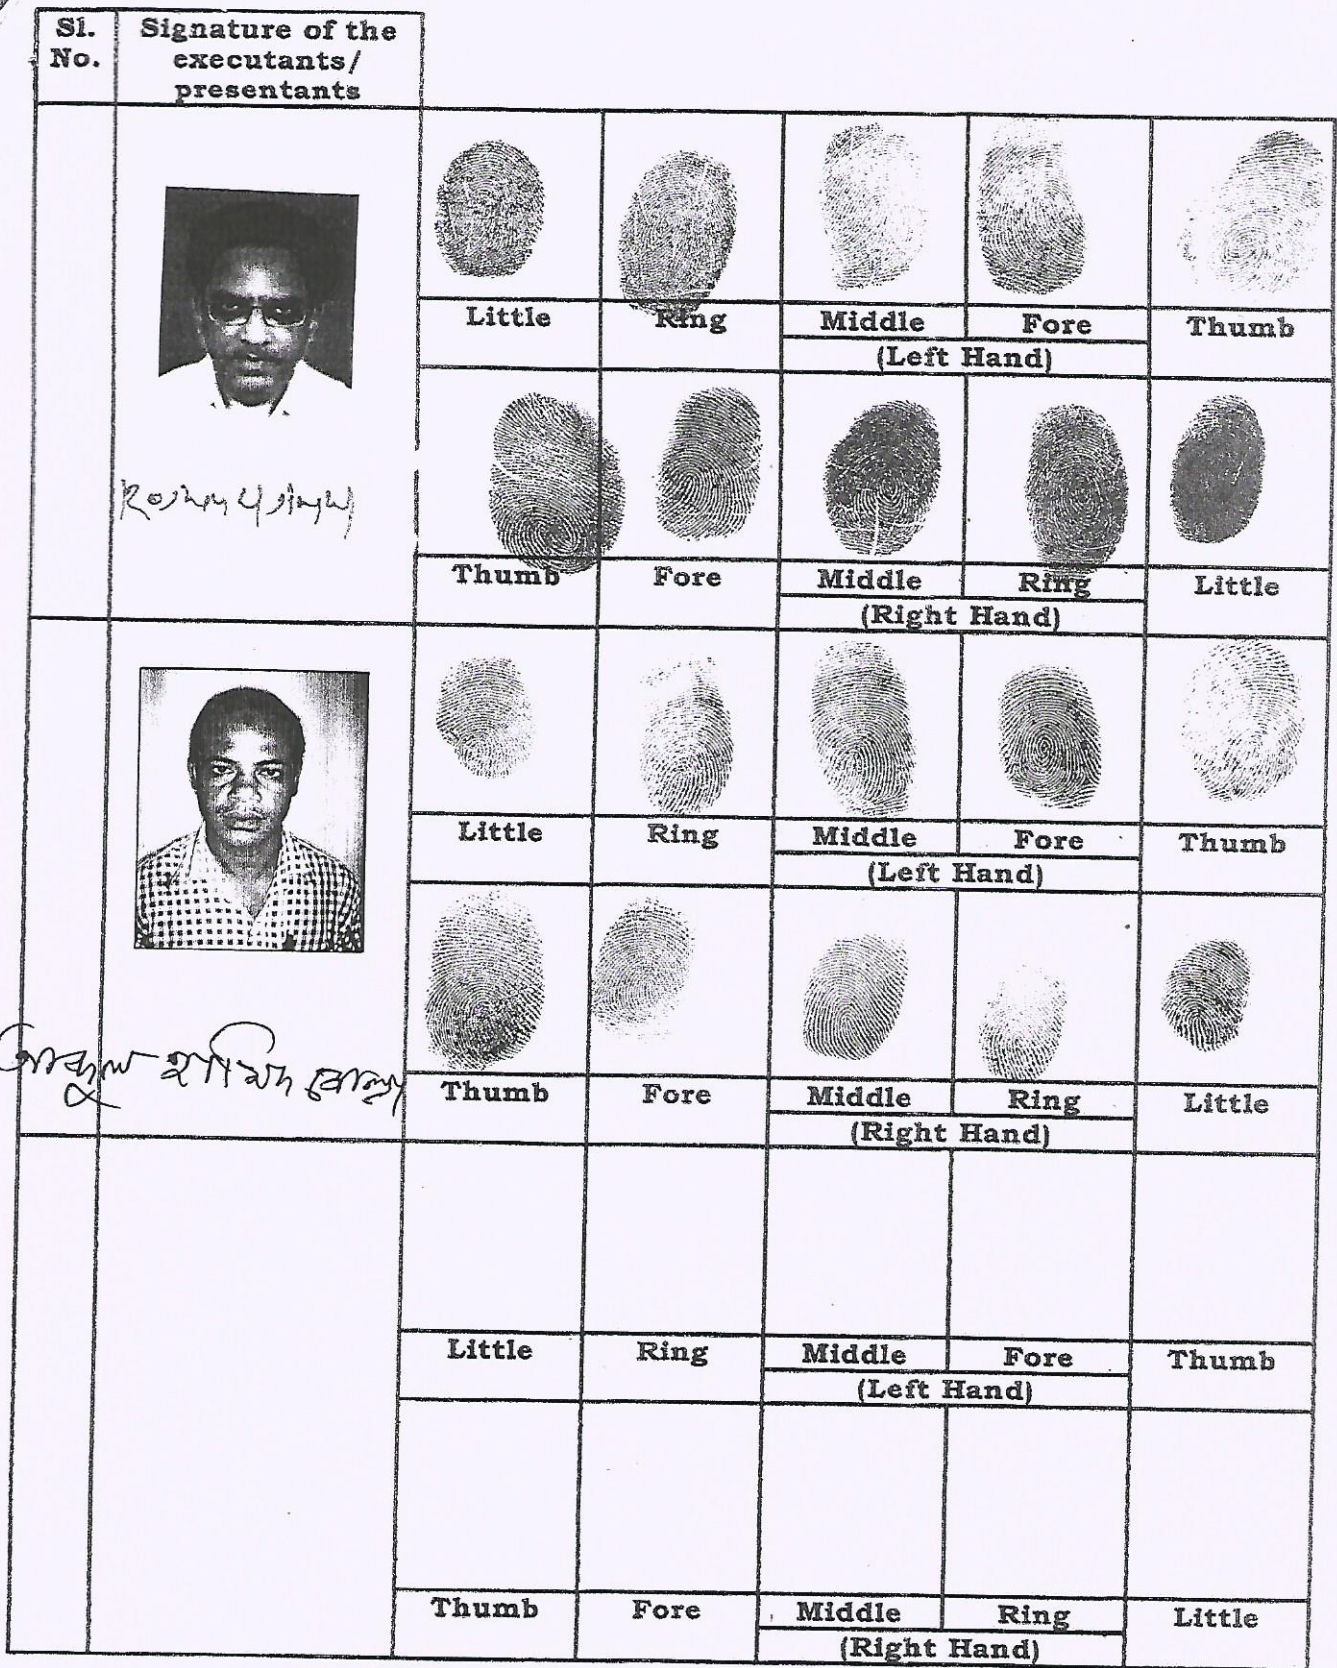 Sl.
No.
Signature of the
executants/
presentants
Little
Ring
Middle
Fore
Thumb
(Left Hand)
Thumb
Fore
Middle
Ring
Little
(Right Hand)
Little
Ring
Middle
Fore
Thumb
(Left Hand)
হামিদ মোল্লা
Thumb
Fore
Middle
Ring
Little
(Right Hand)
Little
Ring
Middle
Fore
Thumb
(Left Hand)
Thumb
Fore
Middle
Ring
Little
(Right Hand)